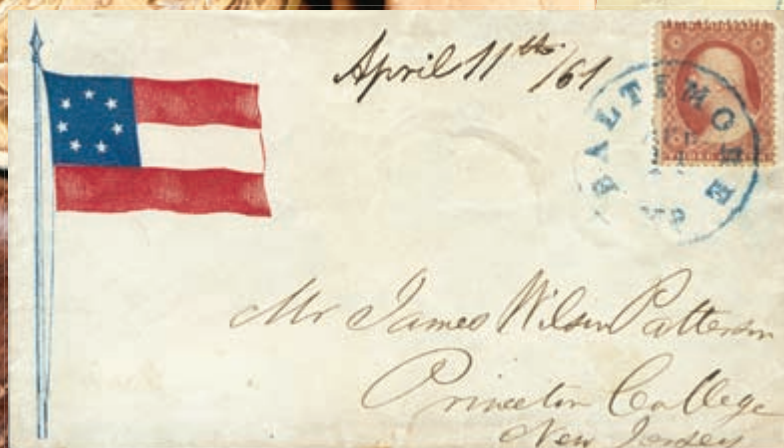 April 11th/61
BALTIMORE
Mr James Wilson Patterson
Princeton College
New Jersey